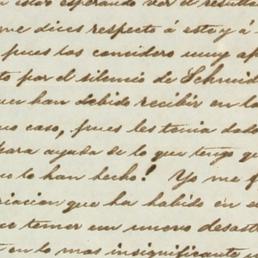 estás esperando ver el result
me dices respecto á esto y á
pues los considero muy af
to por el silencio de Schmid
que han debido recibir en la
caso, pues les tenia dad
para ayuda de lo que tengo q
lo han hecho! Yo me f
riacion que ha habido en e
temer un nuevo desast
en lo mas insignificante